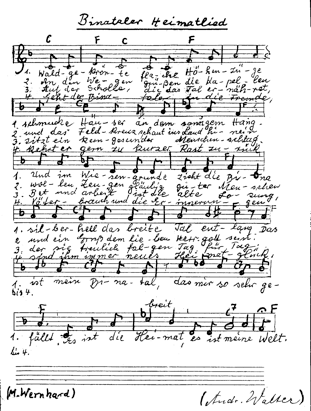 Binataler Heimatlied
C F C F
1. Wald-ge-krön-te fla-che Hö-hen-zü-ge
2. An den We-gen grü-ßen die Ka-pel-len
3. Auf der Scholle, die das Tal er-näh-ret,
4. Geht der Bina- taler in die Fremde,
1. schmucke Häu-ser an dem sonnigem Hang.
2. und das Feld-kreuz schaut ins Land hi-nein
3. sitzt ein kern-gesunder Menschen-schlag
4. kehrt er gern zu kurzer Rast zu-rück
1. Und im Wie-sen-grunde zieht die Bi-na
2. wol-len zeu-gen gläubig gu-ter Menschen
3. Bet und arbeit ist die alte Lo-sung,
4. Väter-Brauch und die Er-innerun-gen
1. sil-ber-hell das breite Tal ent-lang. Das
2. und ein Gruß dem lie-ben Herr-gott sein.
3. der sie treulich fol-gen Tag für Tag.
4. sind ihm immer neues Hei-mat-glück,
1. ist mein Bi-na-tal, das mir so sehr ge-
bis 4.
F breit C7 F
1. fällt, Es ist die Hei-mat, es ist meine Welt.
bis 4.
(M. Wernhard) (Andr. Walter)